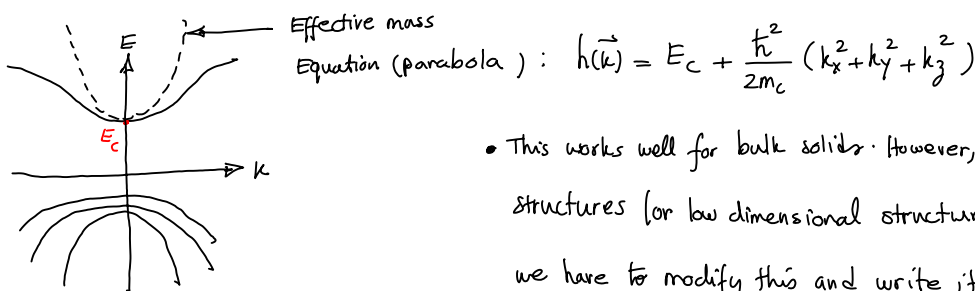 Effective mass
E
Equation (parabola) : h(k⃗) = E_c + ħ²/2m_c (k_x² + k_y² + k_z²)
E_c
• This works well for bulk solids. However,
k
structures (or low dimensional structur
we have to modify this and write it